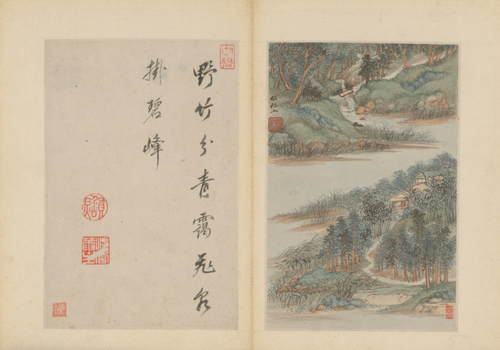 野竹分青靄飛泉
掛碧峰